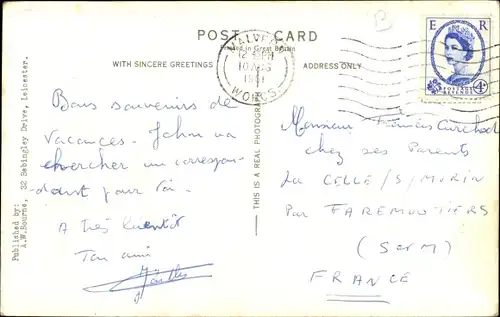 POST CARD
Printed in Great Britain
WITH SINCERE GREETINGS
ADDRESS ONLY
MALVERN
WORCS.
E R
POSTAGE
REVENUE
4D
Bons souvenirs de
vacances. John va
chercher un correspon-
-dant pour toi.
A très bientôt
Ton ami
Monsieur Francis
chez ses Parents
LA CELLE/S/MORIN
Par FAREMOUTIERS
(SetM)
FRANCE
THIS IS A REAL PHOTOGRAPH
Published by:
A.W.Bourne, 32 Babingley Drive, Leicester.
B